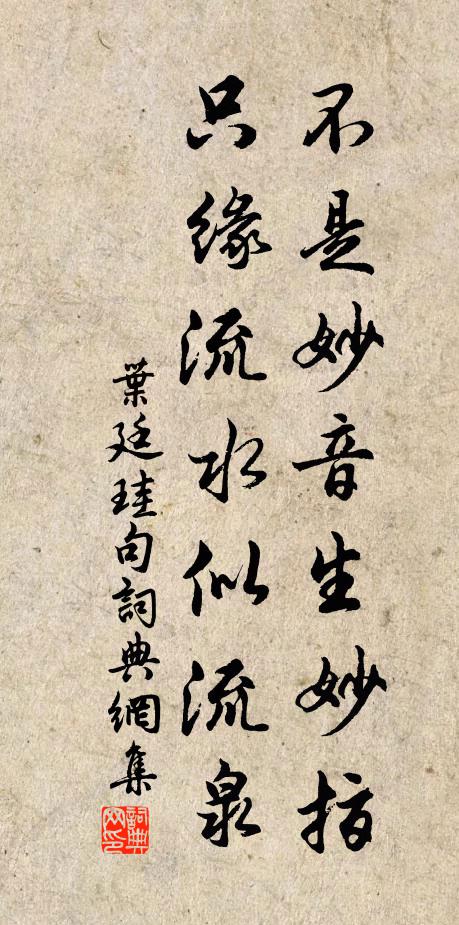 不是妙音生妙指
只緣流水似流泉
葉廷珪句詞典網集
詞典網印